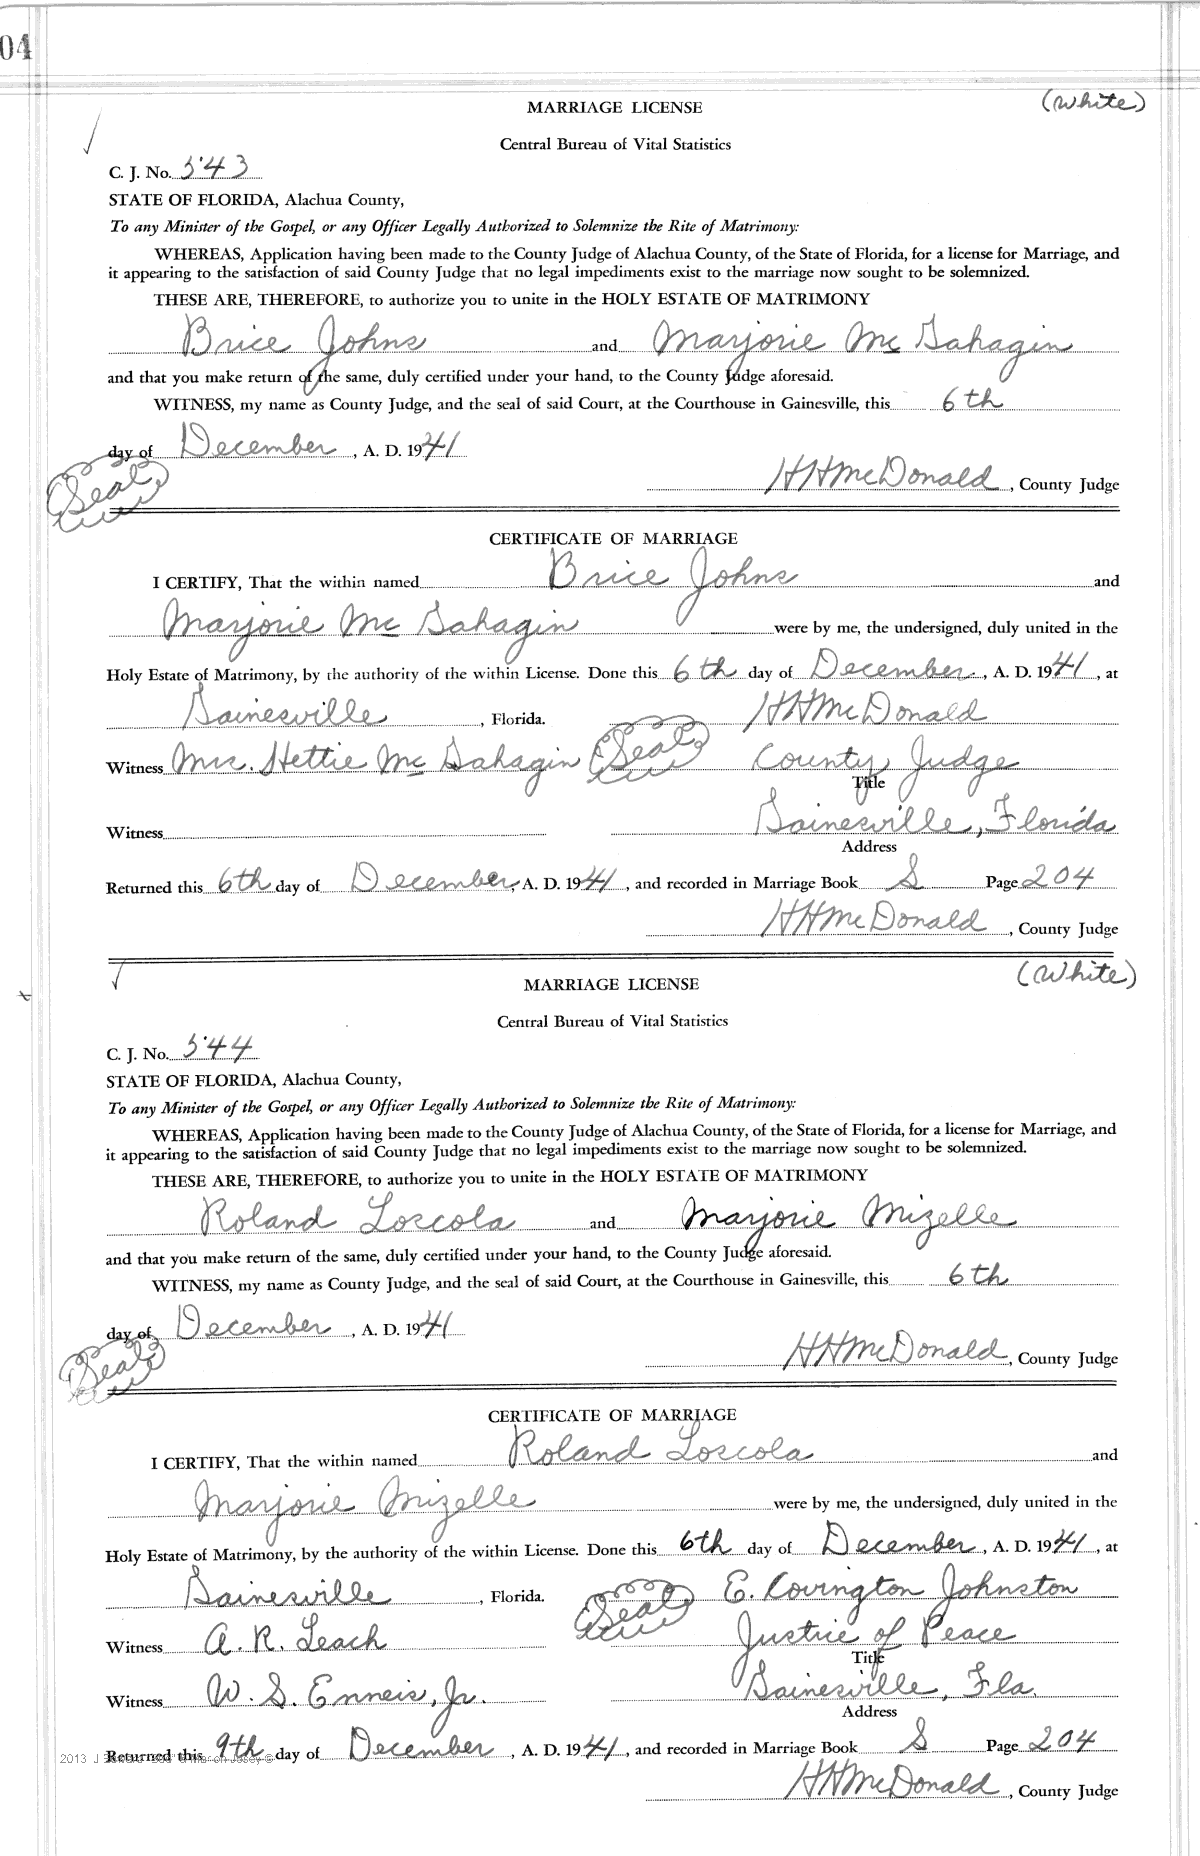 04
(White)
MARRIAGE LICENSE
Central Bureau of Vital Statistics
C. J. No. 543
STATE OF FLORIDA, Alachua County,
To any Minister of the Gospel, or any Officer Legally Authorized to Solemnize the Rite of Matrimony:
WHEREAS, Application having been made to the County Judge of Alachua County, of the State of Florida, for a license for Marriage, and
it appearing to the satisfaction of said County Judge that no legal impediments exist to the marriage now sought to be solemnized.
THESE ARE, THEREFORE, to authorize you to unite in the HOLY ESTATE OF MATRIMONY
Brice Johns and Marjorie Mc Gahagin
and that you make return of the same, duly certified under your hand, to the County Judge aforesaid.
WITNESS, my name as County Judge, and the seal of said Court, at the Courthouse in Gainesville, this 6th
day of December, A. D. 1941
(Seal) HHMcDonald, County Judge
CERTIFICATE OF MARRIAGE
I CERTIFY, That the within named Brice Johns and
Marjorie Mc Gahagin were by me, the undersigned, duly united in the
Holy Estate of Matrimony, by the authority of the within License. Done this 6th day of December, A. D. 1941, at
Gainesville, Florida. HHMcDonald
Witness Mrs. Hettie Mc Gahagin (Seal) County Judge
Title
Witness Gainesville, Florida
Address
Returned this 6th day of December, A. D. 1941, and recorded in Marriage Book S Page 204
HHMcDonald, County Judge
(White)
MARRIAGE LICENSE
Central Bureau of Vital Statistics
C. J. No. 544
STATE OF FLORIDA, Alachua County,
To any Minister of the Gospel, or any Officer Legally Authorized to Solemnize the Rite of Matrimony:
WHEREAS, Application having been made to the County Judge of Alachua County, of the State of Florida, for a license for Marriage, and
it appearing to the satisfaction of said County Judge that no legal impediments exist to the marriage now sought to be solemnized.
THESE ARE, THEREFORE, to authorize you to unite in the HOLY ESTATE OF MATRIMONY
Roland Loscola and Marjorie Mizelle
and that you make return of the same, duly certified under your hand, to the County Judge aforesaid.
WITNESS, my name as County Judge, and the seal of said Court, at the Courthouse in Gainesville, this 6th
day of December, A. D. 1941
(Seal) HHMcDonald, County Judge
CERTIFICATE OF MARRIAGE
I CERTIFY, That the within named Roland Loscola and
Marjorie Mizelle were by me, the undersigned, duly united in the
Holy Estate of Matrimony, by the authority of the within License. Done this 6th day of December, A. D. 1941, at
Gainesville, Florida. (Seal) E. Covington Johnston
Witness A. R. Leach Justice of Peace
Title
Witness W. S. Enneis, Jr. Gainesville, Fla.
Address
2013
Returned this 9th day of December, A. D. 1941, and recorded in Marriage Book S Page 204
HHMcDonald, County Judge